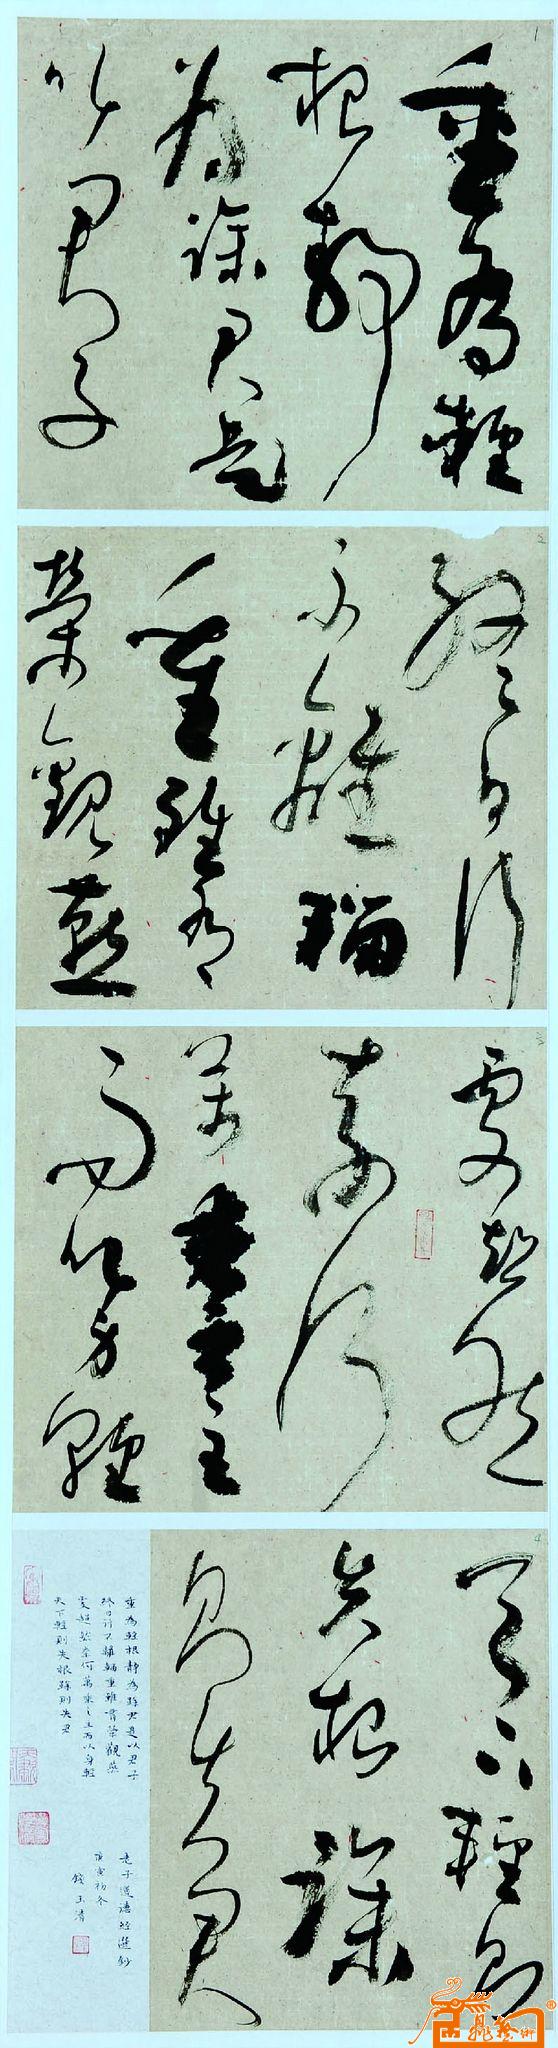 重為輕
根靜
為躁君是
以君子
終日行
不離輜
重雖有
榮觀燕
處超然
奈何
萬乘之主
而以身輕
天下輕則
失根躁
則失君
重為輕根靜為躁君是以君子
終日行不離輜重雖有榮觀燕
處超然奈何萬乘之主而以身輕
天下輕則失根躁則失君
老子道德經選鈔
庚寅初冬
錢玉清
1
2
3
4